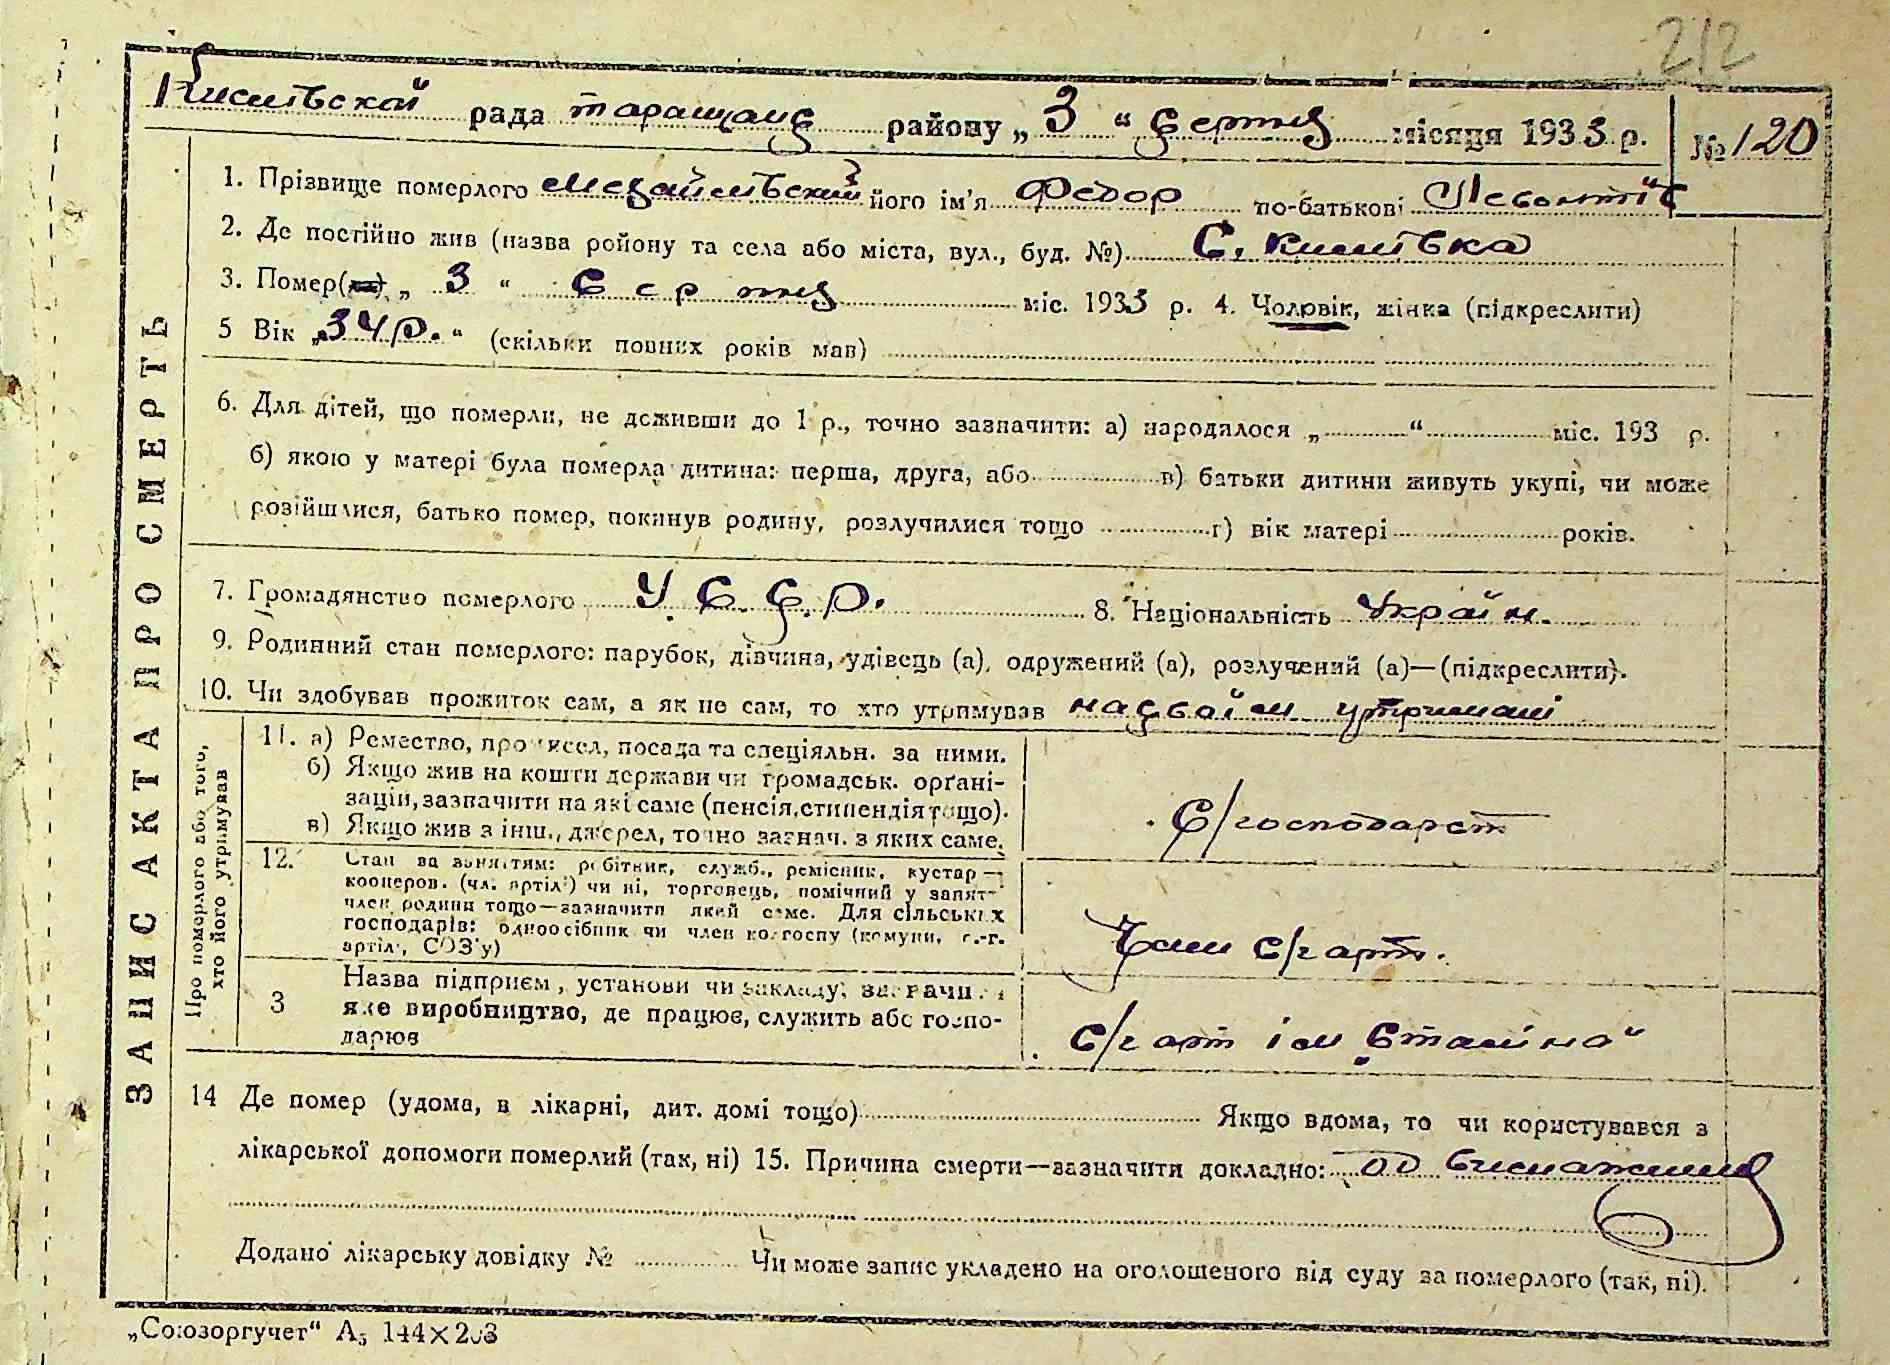 212
Кислівской рада таращанс району „3“ серпня місяця 1933 р. № 120
ЗАПИС АКТА ПРО СМЕРТЬ
1. Прізвище померлого його ім'я Федор по-батькові Левонтіїв
2. Де постійно жив (назва району та села або міста, вул., буд. №) С. Кислівка
3. Помер(ла) „3“ Серпня міс. 1933 р. 4. Чоловік, жінка (підкреслити)
5 Вік „34 р.“ (скільки повних років мав)
6. Для дітей, що померли, не доживши до 1 р., точно зазначити: а) народилося „ “ міс. 193 р.
б) якою у матері була померла дитина: перша, друга, або в) батьки дитини живуть укупі, чи може
розійшлися, батько помер, покинув родину, розлучилися тощо г) вік матері років.
7. Громадянство померлого У.С.С.Р. 8. Національність Україн.
9. Родинний стан померлого: парубок, дівчина, удівець (а), одружений (а), розлучений (а)—(підкреслити).
10. Чи здобував прожиток сам, а як не сам, то хто утримував на своїм утримані
Про померлого або того,
хто його утримував
11. а) Ремество, промисел, посада та спеціяльн. за ними.
б) Якщо жив на кошти держави чи громадськ. орґані-
зацій, зазначити на які саме (пенсія, стипендія тощо).
в) Якщо жив з інш., джерел, точно зазнач. з яких саме.
С/господарст
12. Стан за заняттям: робітник, служб., ремісник, кустар—
кооперов. (чл. артілі) чи ні, торговець, помічний у занят-
член родини тощо—зазначити який саме. Для сільських
господарів: одноосібник чи член колгоспу (комуни, с.-г.
артілі, СОЗ'у)
Член с/г арт.
3 Назва підприєм, установи чи закладу, зазначи
яке виробництво, де працює, служить або госпо-
дарює
С/г арт ім „Сталіна“
14 Де помер (удома, в лікарні, дит. домі тощо) Якщо вдома, то чи користувався з
лікарської допомоги померлий (так, ні) 15. Причина смерти—зазначити докладно: од виснаження
Додано лікарську довідку № Чи може запис укладено на оголошеного від суду за померлого (так, ні).
„Союзоргучет“ А5 144×203